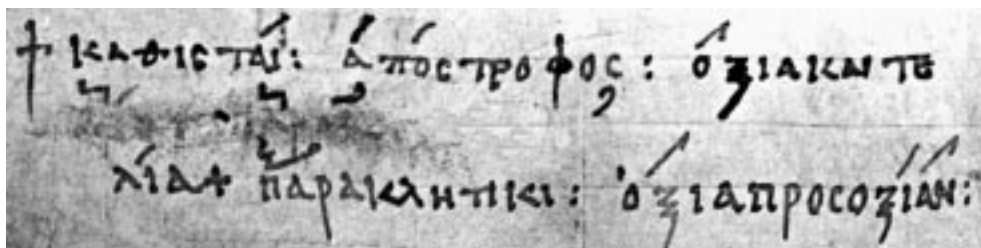 † καθισταί: ἀπόστροφος: ὀξία και τε
λία + παρακλητικι: ὀξία προς οξίαν: